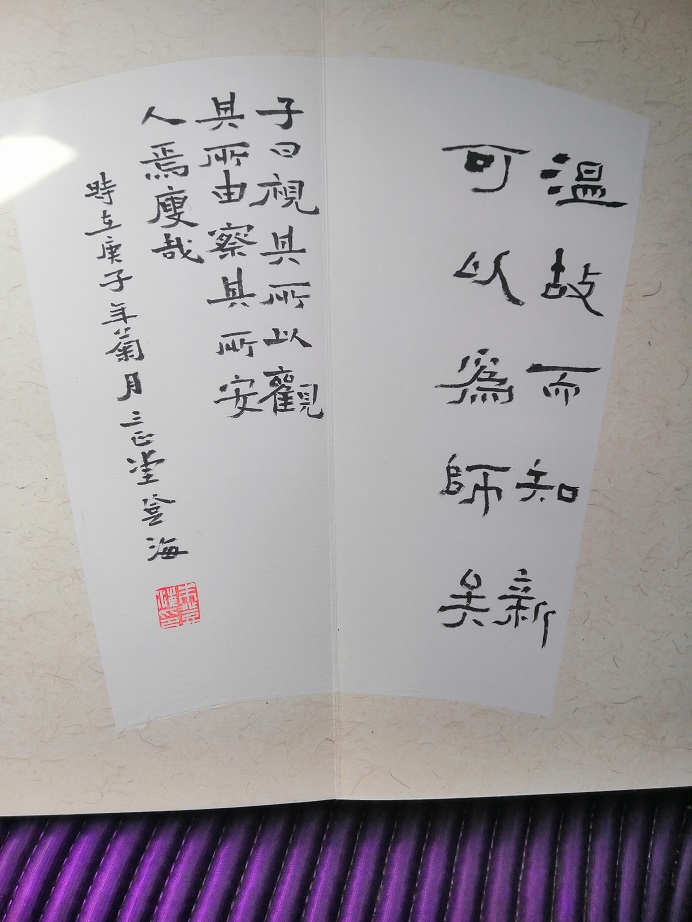 温故而知新
可以爲師矣
子曰視其所以觀
其所由察其所安
人焉廋哉
時在庚子年菊月三正堂登海